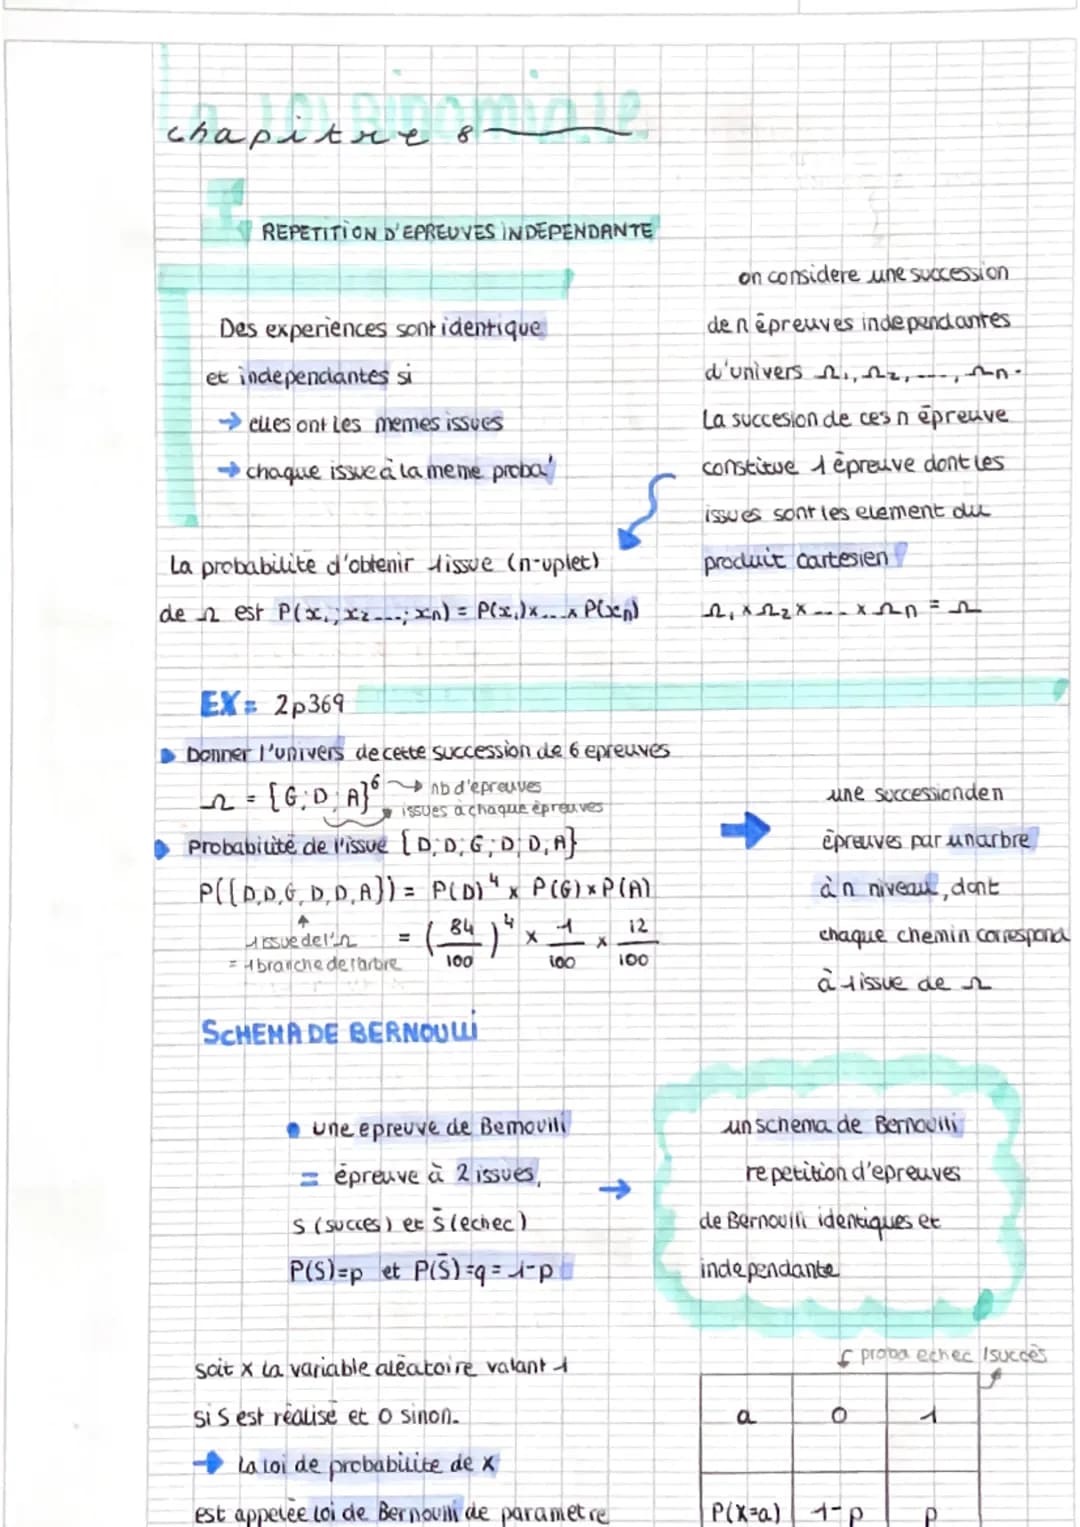 la loi binomiale
chapitre 8
I.
REPETITION D'EPREUVES INDEPENDANTE
Des experiences sont identique
et independantes si
→ elles ont les memes issues
→ chaque issue à la meme proba'
on considere une succession
de n épreuves independantes
d'univers Ω₁, Ω₂, ---, Ωn.
La succesion de ces n épreuve
constitue 1 épreuve dont les
issues sont les element du
produit cartesien
Ω₁ x Ω₂ x --- x Ωn = Ω
La probabilité d'obtenir 1 issue (n-uplet)
de Ω est P(x₁; x₂ ---; xn) = P(x₁)x...x P(xn)
EX= 2p369
Donner l'univers de cette succession de 6 epreuves
Ω = {G; D; A}⁶ → nb d'epreuves
issues à chaque épreuves
Probabilité de l'issue {D; D; G; D; D, A}
P({D,D,G,D,D,A}) = P(D)⁴ x P(G) x P(A)
1 issue de l'Ω
= 1 branche de l'arbre
= (84/100)⁴ x 1/100 x 12/100
→ une succession de n
épreuves par un arbre
à n niveau, dont
chaque chemin correspond
à 1 issue de Ω
SCHEMA DE BERNOULLI
• une epreuve de Bernouilli
= épreuve à 2 issues,
S (succes) et S̄ (echec)
P(S)=p et P(S̄)=q = 1-p
→
un schema de Bernouilli
repetition d'epreuves
de Bernouilli identiques et
independante
soit X la variable aléatoire valant 1
si S est réalisé et 0 sinon.
→ La loi de probabilite de X
est appelée loi de Bernoulli de parametre
proba echec / succès
a 0 1
P(X=a) 1-p p